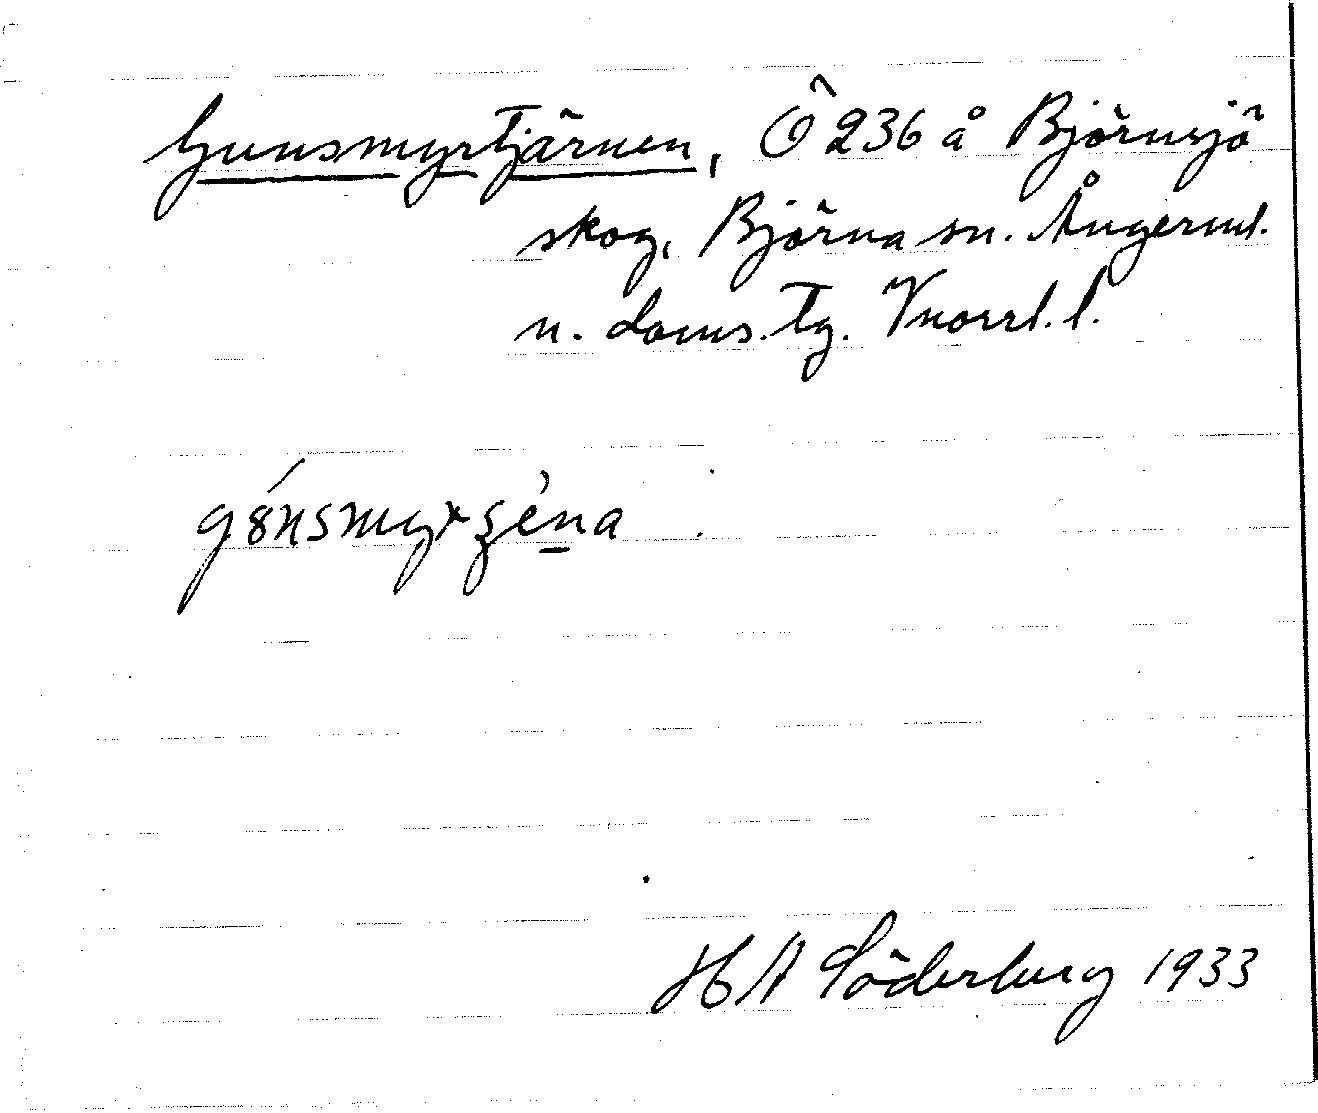 Gunsmyrtjärnen, Ö 236 å Björnsjö
skog, Björna sn. Ångerml.
n. doms. tg. Vnorrl. l.
HA Söderberg 1933